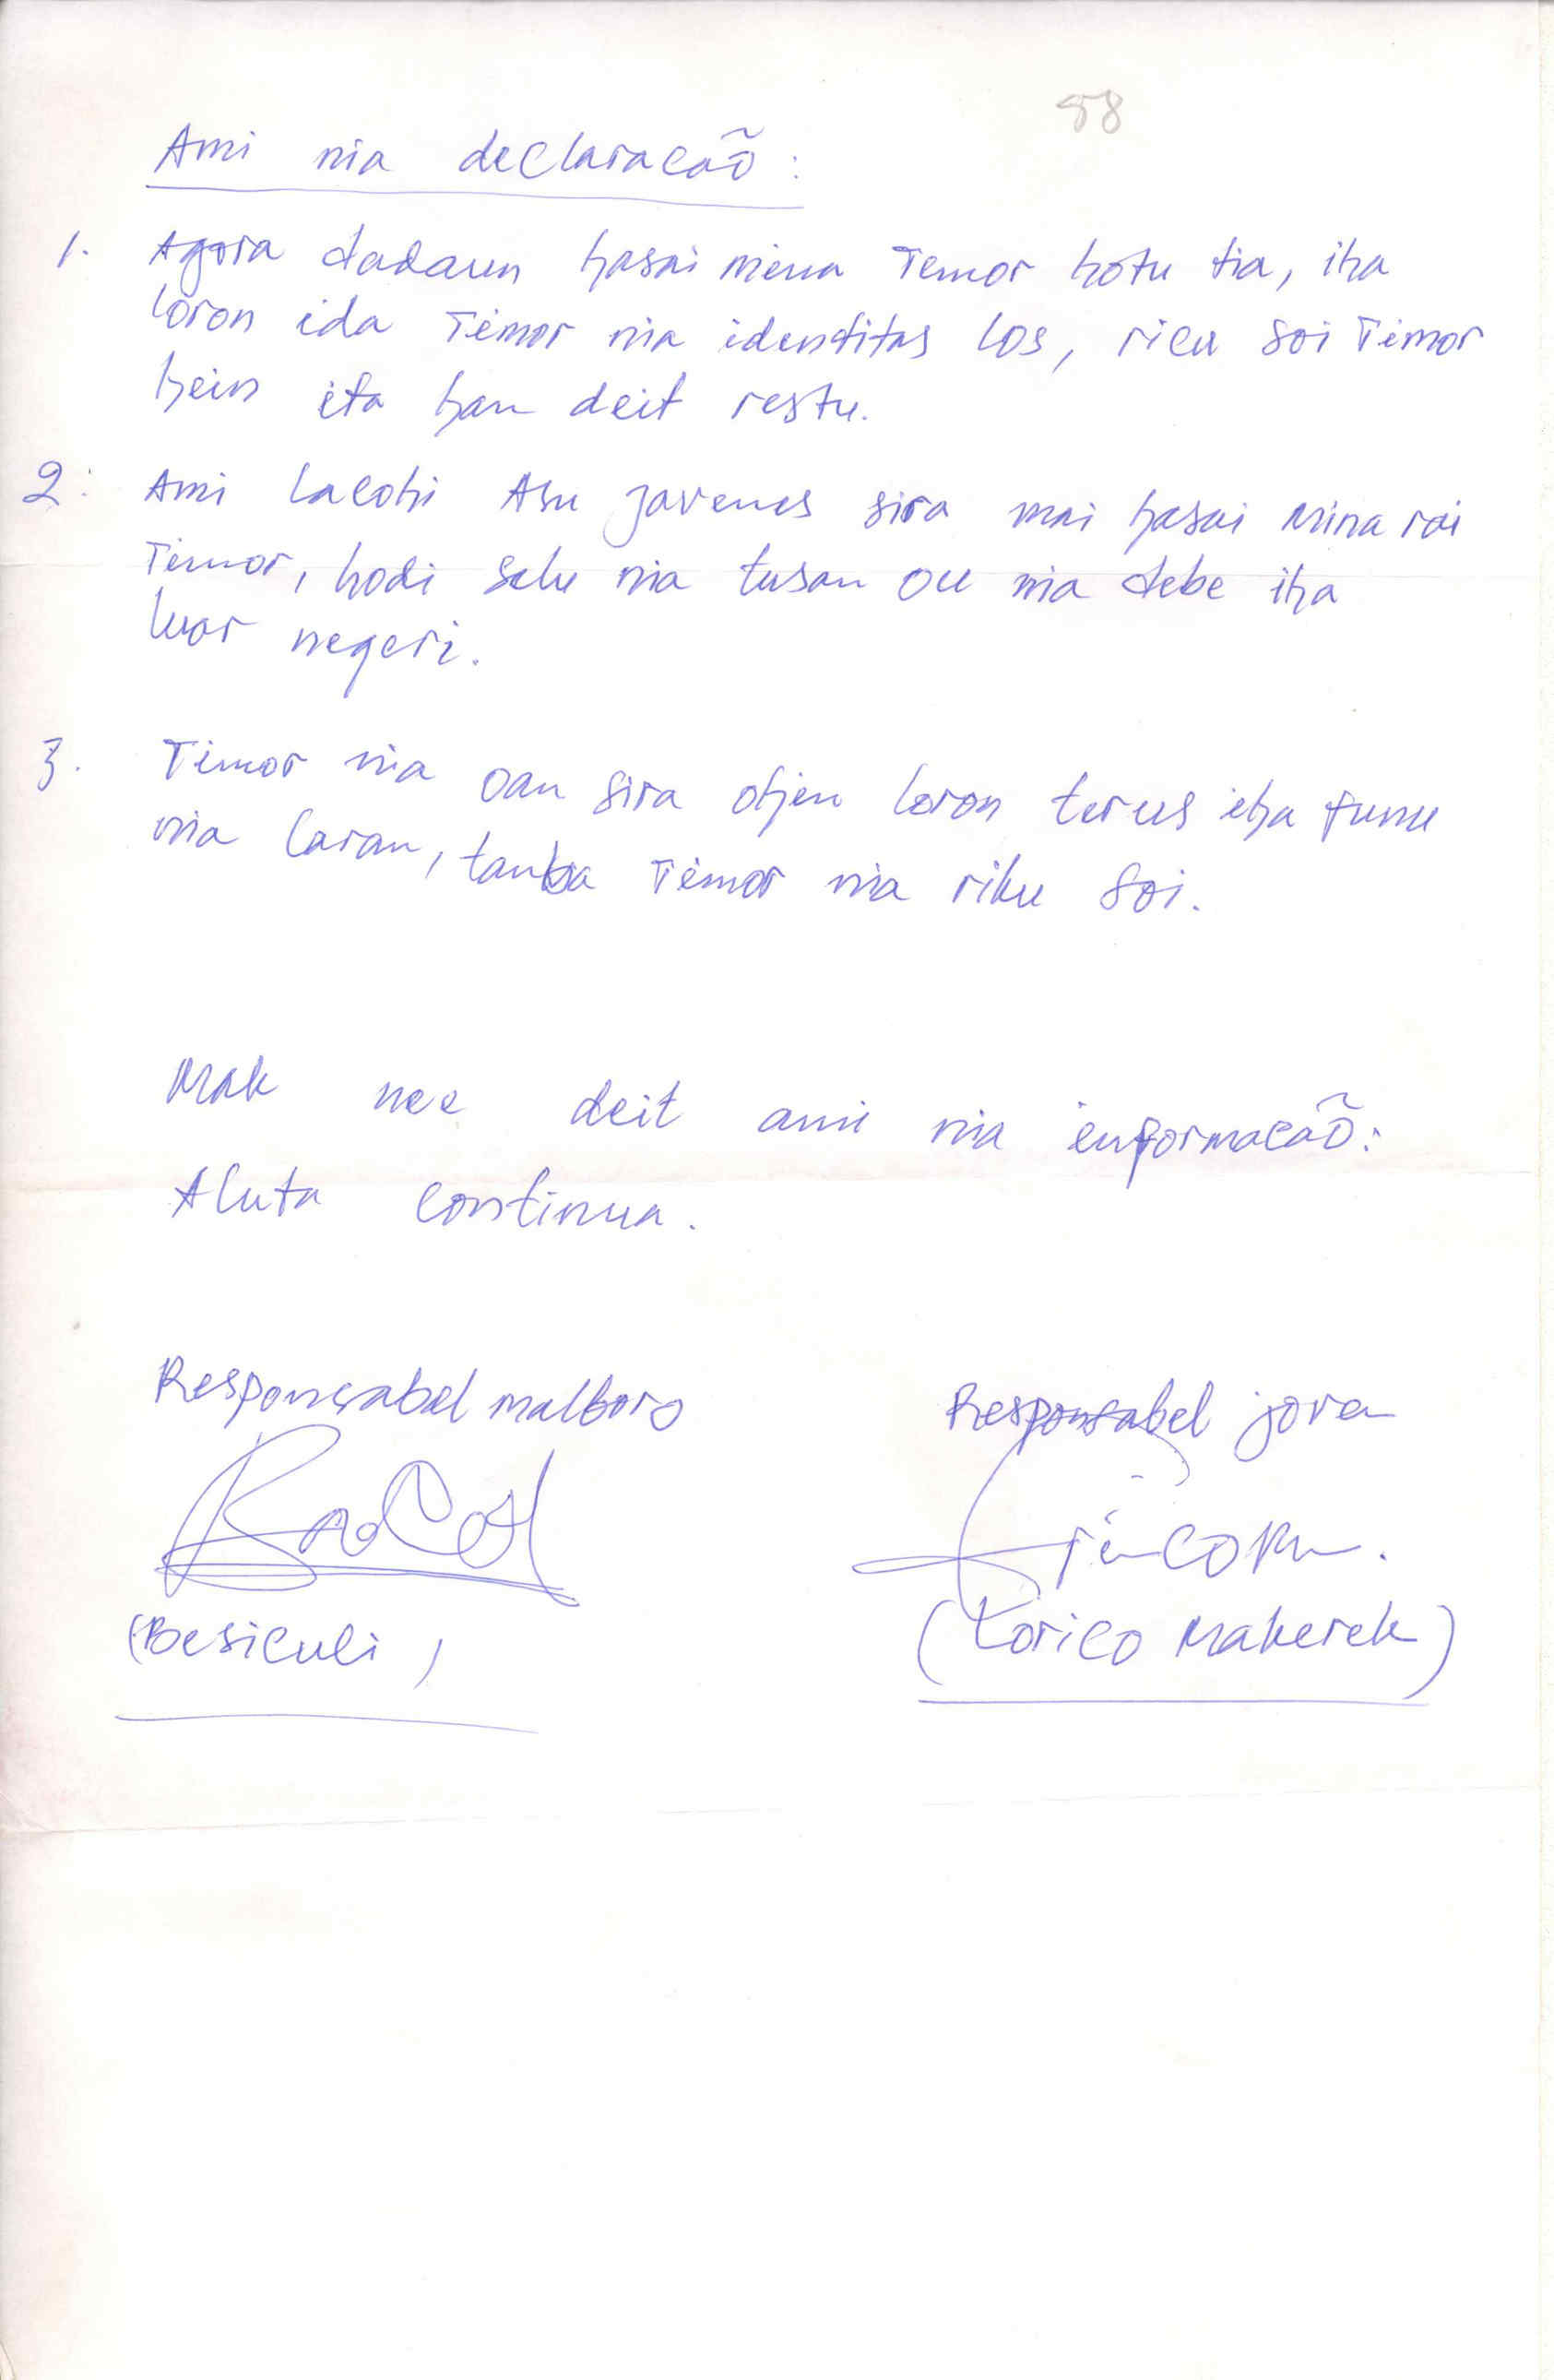 58
Ami nia declaracaõ:
1. Agora dadaun hasai mina Temor hotu tia, iha
loron ida Timor nia identitas los, ricu soi Timor
hein ita han deit restu.
2. Ami lacohi Asu jovenes sira mai hasai Mina rai
Timor, hodi selu nia tusan ou nia debe iha
luar negeri.
3. Timor nia oan sira ohjen loron terus iha funu
nia laran, tanba Timor nia riku soi.
Mak nee deit ami nia enformacaõ:
Aluta continua.
Responsabel malboro
Responsabel joven
(Besiculi)
(Lorico Makerek)